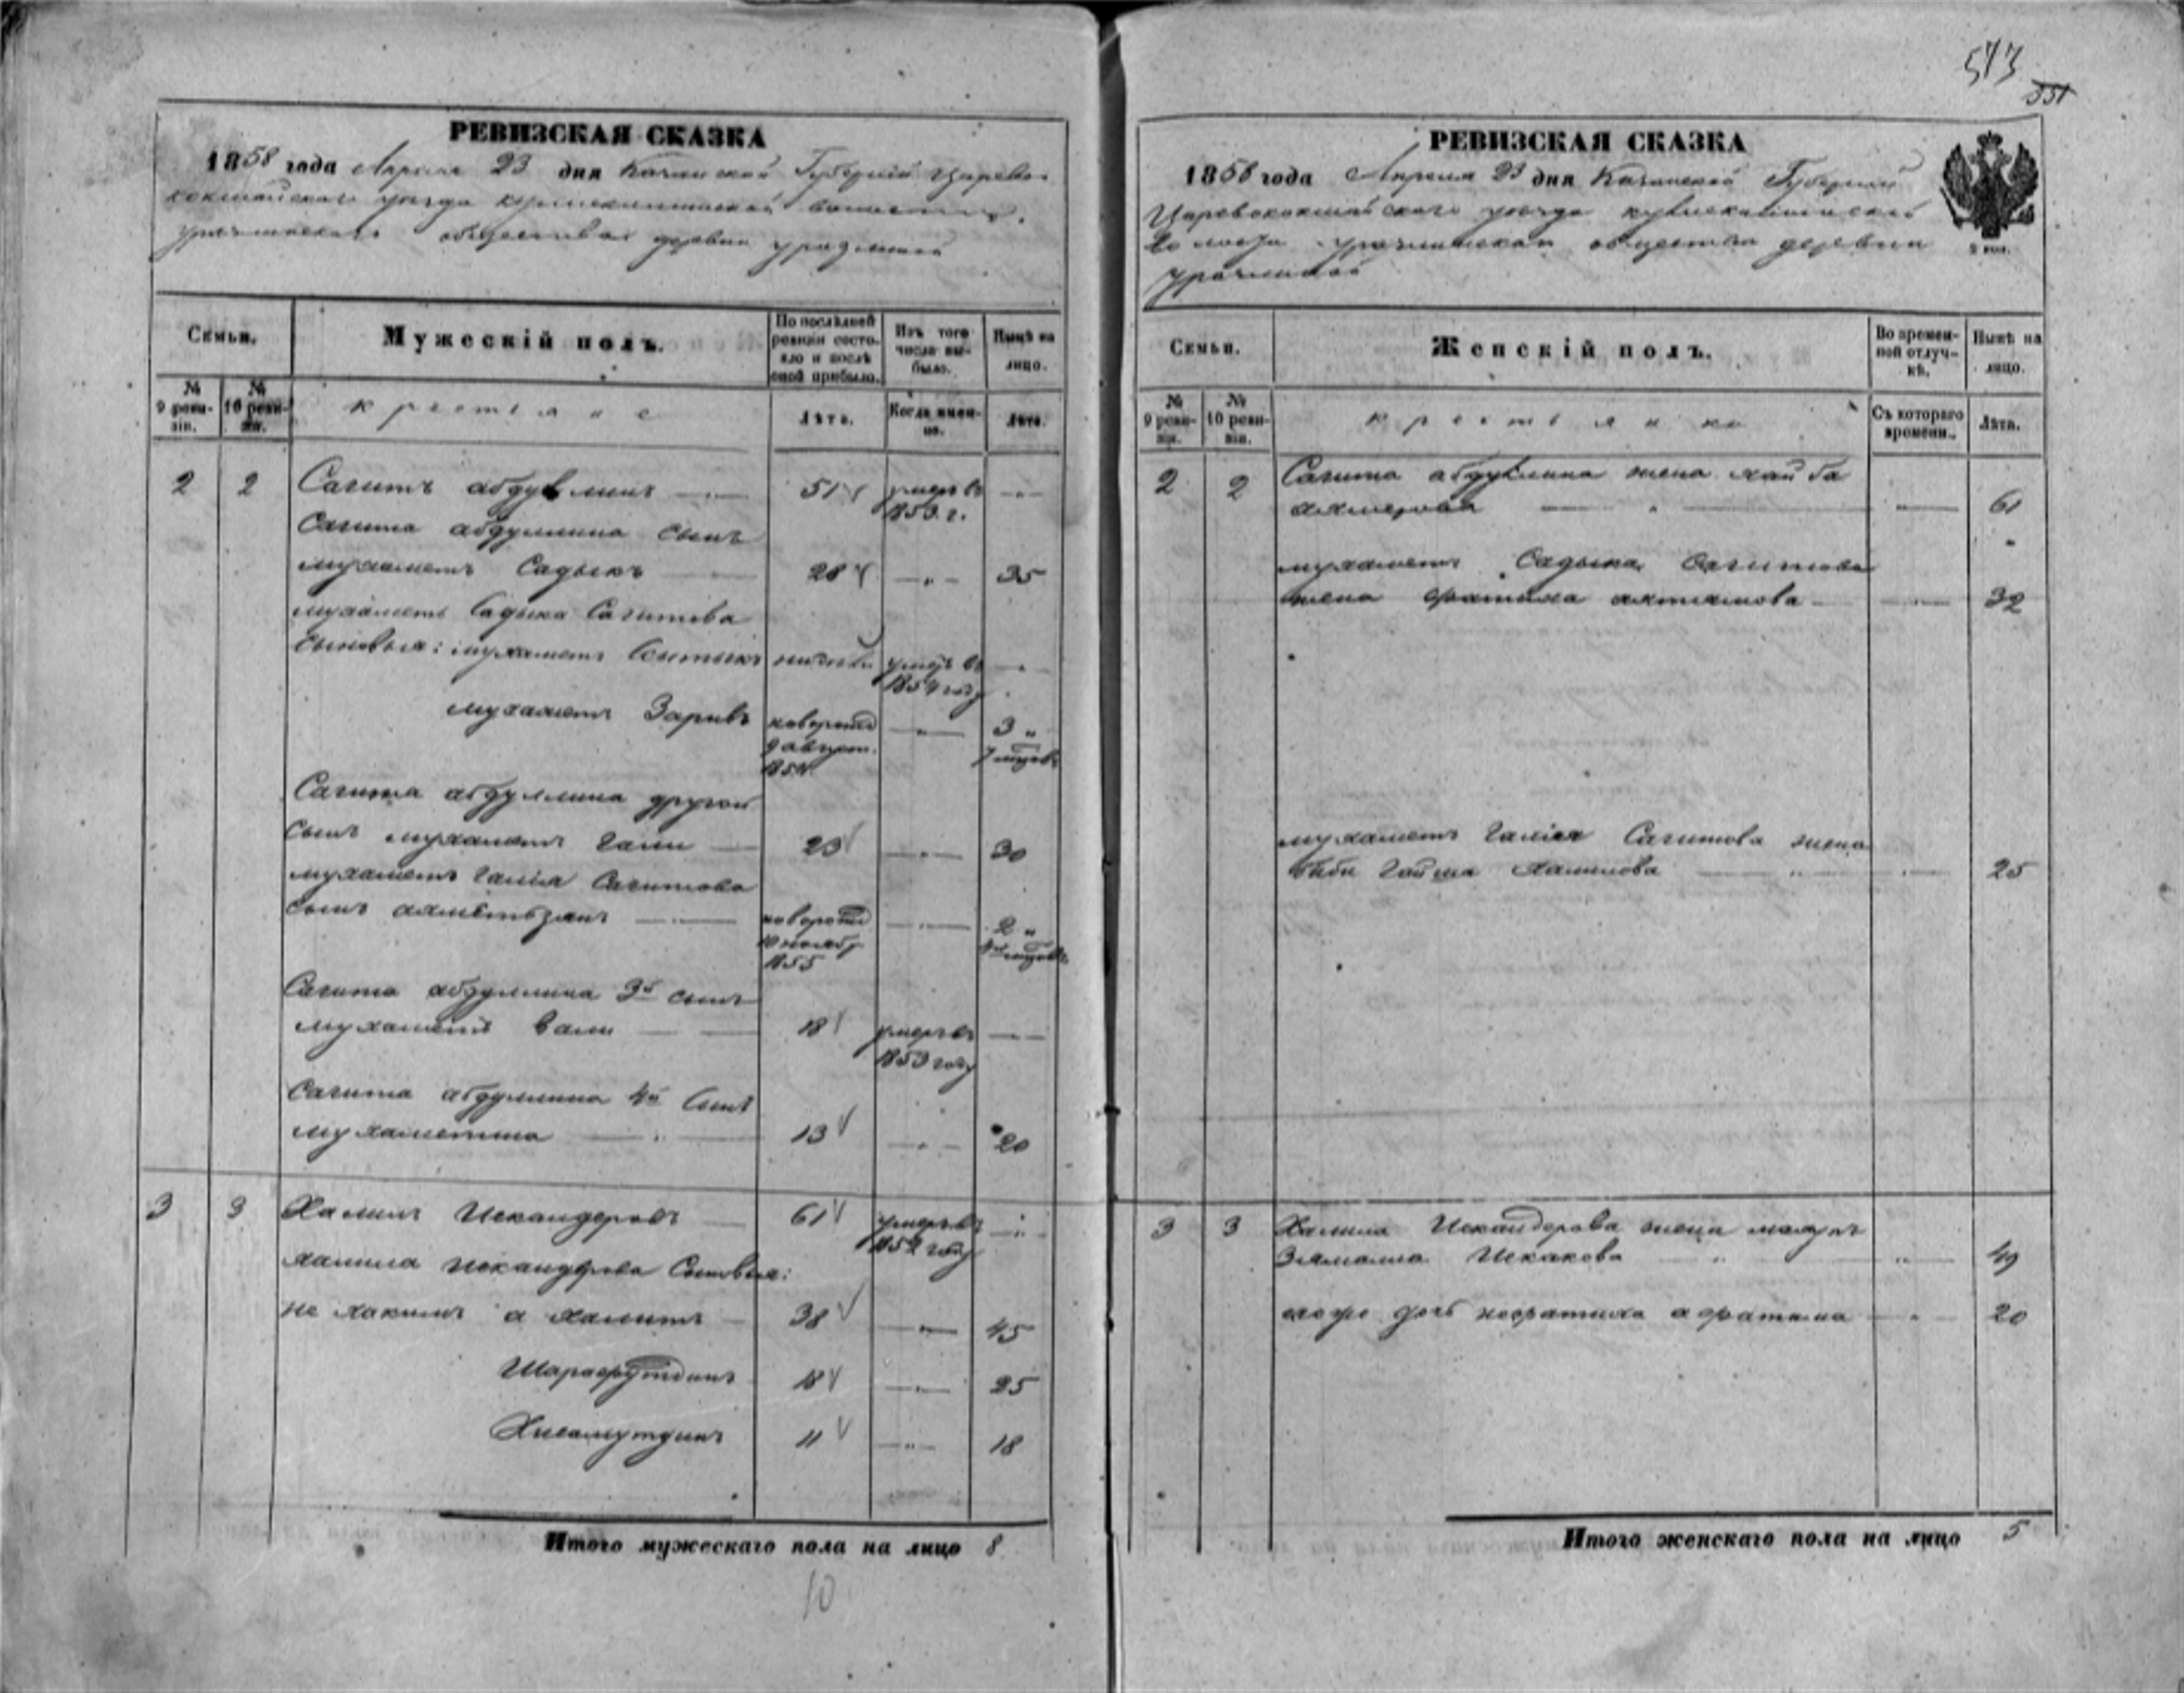 573
351
РЕВИЗСКАЯ СКАЗКА
1858 года Апреля 23 дня Казанской Губернии Царево
кокшайскаго уезда
общества деревни
Семьи.
Мужескій полъ.
По послѣдней ревизіи состояло и послѣ оной прибыло.
Изъ того числа выбыло.
Нынѣ на лицо.
№ 9 ревизіи.
№ 10 ревизіи.
крестьяне
Лѣта.
Когда именно.
Лѣта.
2 2 Сагитъ абдуллинъ 51 умеръ въ
1853 г.
Сагита абдуллина сынъ
мухаметъ Садыкъ 28 35
мухаметъ Садыка Сагитова
сыновья: мухаметъ умеръ въ
1854 году
мухаметъ Зарифъ новорожд 3
9 август. 7 месцов
1854
Сагита абдуллина другой
сынъ мухаметъ Гали 23 30
мухаметъ Галія Сагитова
сынъ ахметьзянъ новорожд 2
10 ноябр
1855
Сагита абдуллина 3й сынъ
мухаметъ вали 18 умеръ въ
1853 году
Сагита абдуллина 4й сынъ
мухаметша 13 20
3 3 Халилъ Искандеровъ 61 умеръ въ
году
халила искандерова Сыновья:
не хакимъ а халитъ 38 45
Шарафутдинъ 18 25
Хисамутдинъ 11 18
Итого мужескаго пола на лицо 8
10
РЕВИЗСКАЯ СКАЗКА
1858 года Апреля 23 дня Казанской Губернии
Царевококшайскаго уезда
волости общества деревни
2 коп.
Семьи.
Женскій полъ.
Во временной отлучкѣ.
Нынѣ на лицо.
№ 9 ревизіи.
№ 10 ревизіи.
крестьянки
Съ котораго времени.
Лѣта.
2 2 Сагита абдуллина жена
61
мухаметъ Садыка Сагитова
жена фатима 32
мухаметъ Галія Сагитова жена
биби Халилова 25
3 3 Халила Искандерова жена
Исхакова 49
дочь а фатима 20
Итого женскаго пола на лицо 5